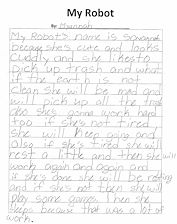 My Robot
By:
My Robot's name is
because she's cute and looks
cuddly and she likes to
pick up trash and what
if the earth is not
clean she will be mad and
will pick up all the trash
also she's gonna work hard
too if she's not tired
she will keep going and
also if she's tired she will
rest a little and then she will
work again and again and
if she's done she will be resting
and if she's not then she will
play some games. Then she
sleeps because that was a lot of
work.